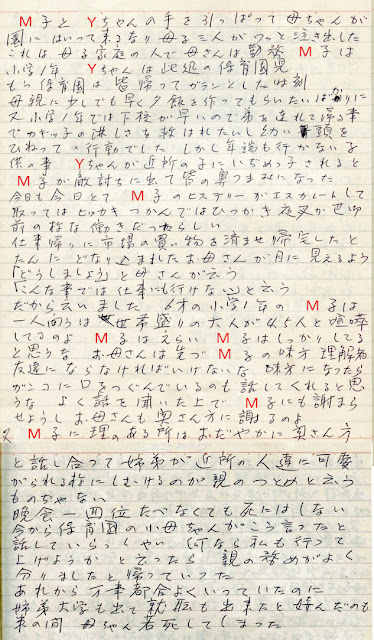 M子と Yちゃんの手を引っぱって母ちゃんが
園にはいって来るなり母子三人がワッと泣き出した
これは母子家庭の人で母さんは勤務 M子は
小学1年 Yちゃんは此組の保育園児
もう保育園は皆帰ってガランとした時刻
母親に少しでも早く夕飯を作ってもらいたいばかりに
又小学1年では下校が早いので弟を連れて帰る事
でカギッ子の淋しさを救はれたいし幼い頭を
ひねっての行動でした しかし年端も行かない子
供の事 Yちゃんが近所の子にいぢめっ子されると
M子が敵討ちに出て皆の鼻つまみになった
今日も今日とて M子のヒステリーがエスカレートして
取ってはヒッカキ つかんではひっかき夜叉か
前の様な働きだったらしい
仕事帰りに市場の買い物を済ませ帰宅したと
たんに どなり込まれたお母さんが目に見えるよう
「どうしましょう」と母さんが云う
「こんな事では仕事にも行けない」と云う
だから云いました 6才の小学1年の M子は
一人向うは世帯盛りの大人が4 5人と喧嘩
してるのよ M子はえらい M子はしっかりしてる
と思うな お母さんは先づ M子の味方 理解者
友達にならなければいけないな 味方になったら
ガンコに口をつぐんでいるのも話してくれると思
うな よく話を聞いた上で M子にも謝まら
せようしお母さんも奥さん方に謝るのよ
又 M子に理のある所はおだやかに奥さん方
と話し合って姉弟が近所の人達に可愛
がられる様にしむけるのが親のつとめと云う
ものぢゃない
晩食一回位たべなくても死にはしない
今から保育園の小母ちゃんがこう言ったと
話していらっしゃい 何なら私も行って
上げようかと云ったら 親の務めがよく
分りましたと帰っていった
あれから万事都合よくいっていたのに
姉弟大学も出て就職も出来たと喜んだのも
束の間 母ちゃん若死してしまった